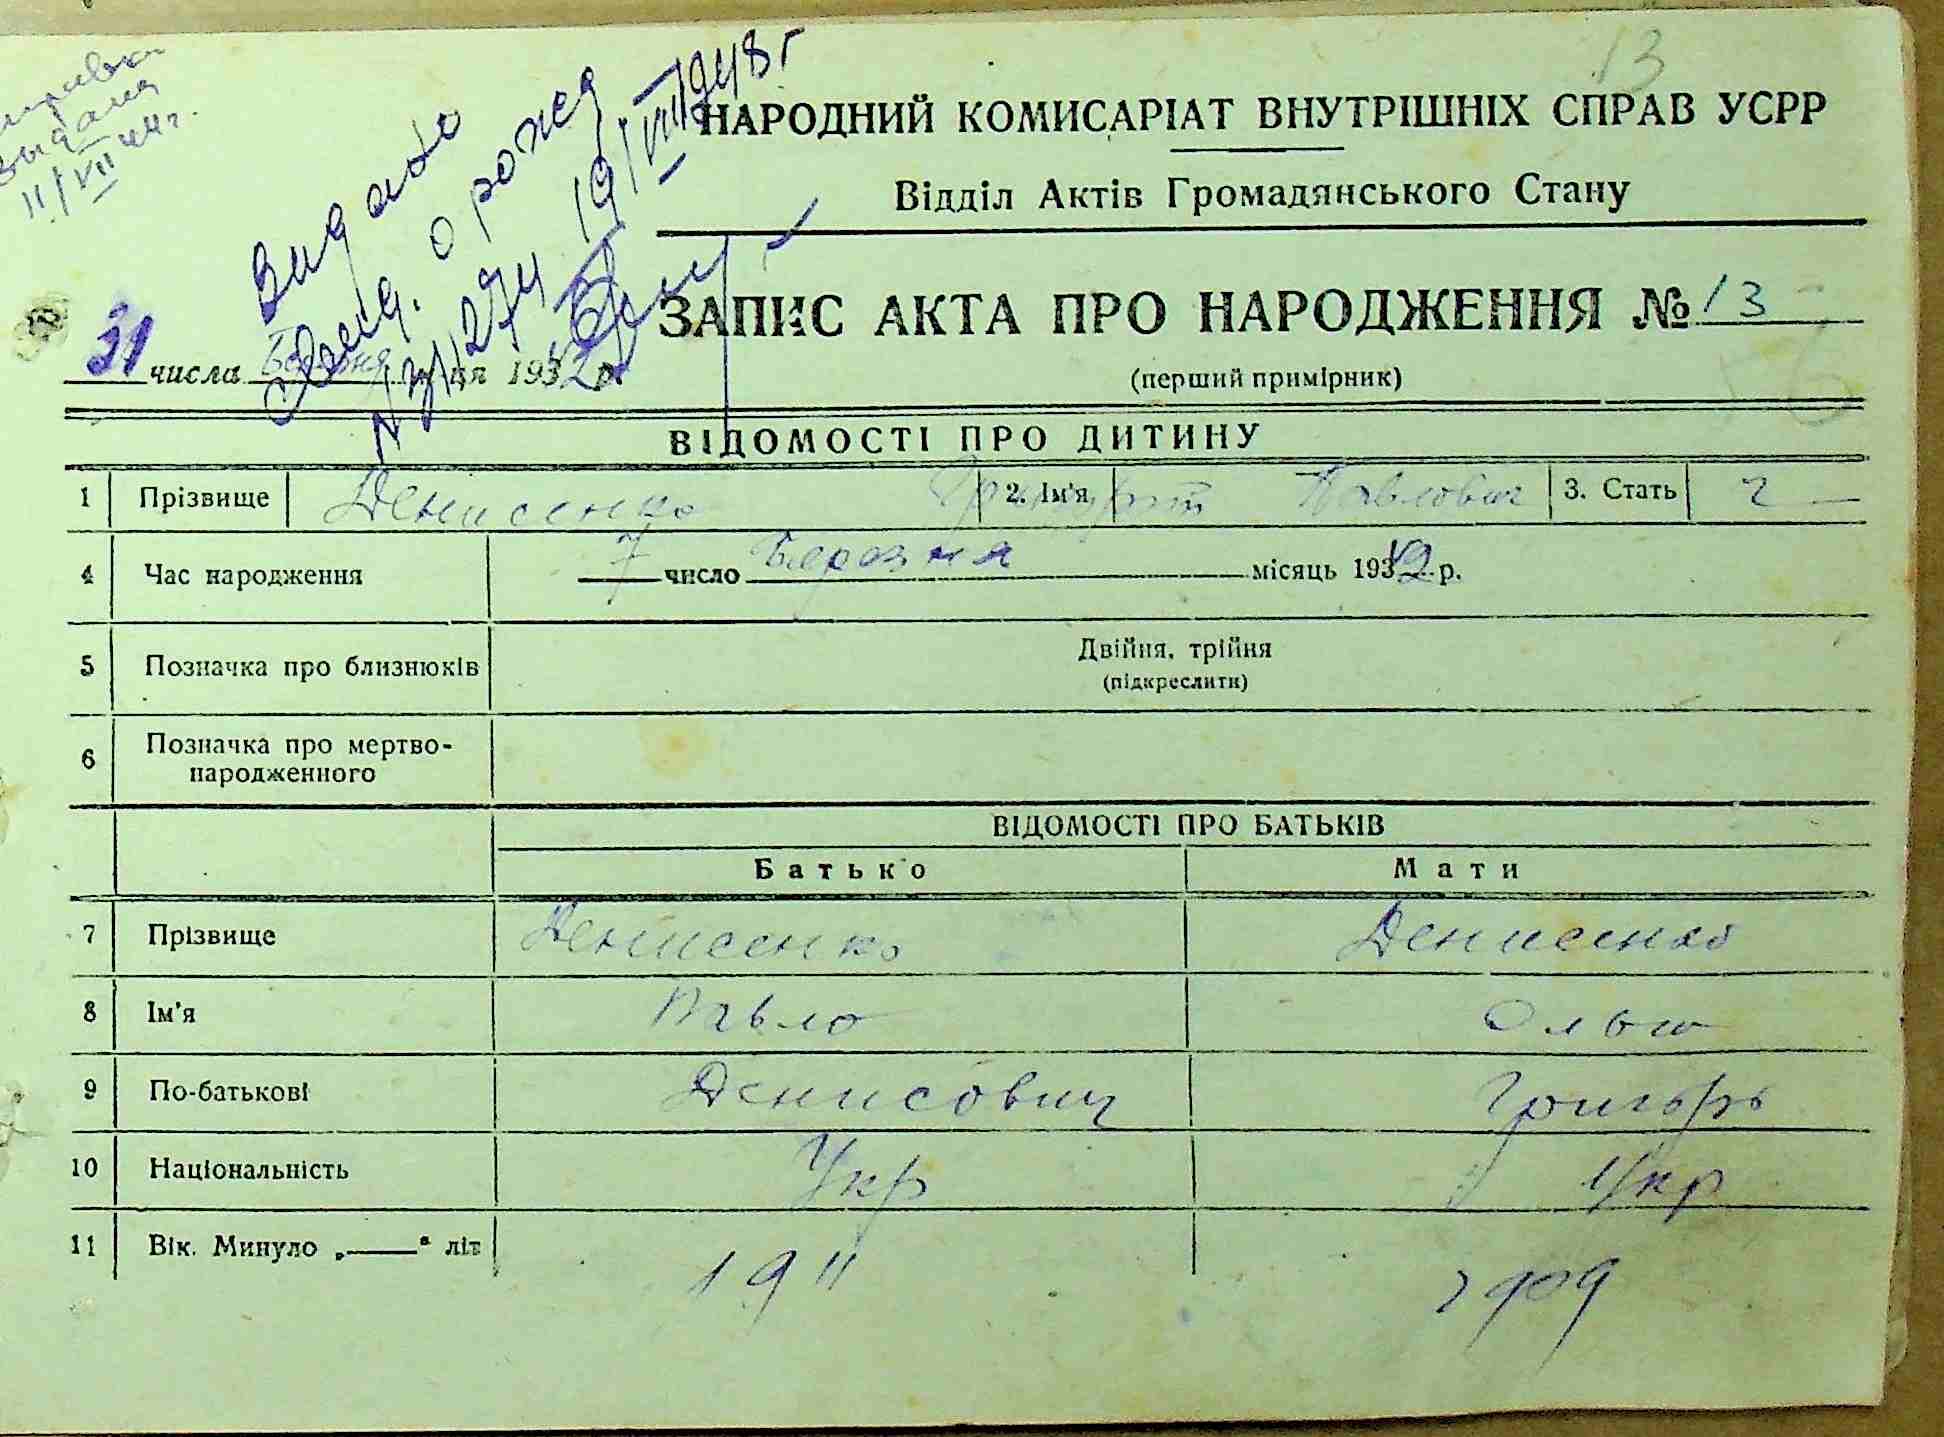 13
выдана
11/VII 44 г.
Видано
о рожд
N 311274 19/VIII 1948 г
НАРОДНИЙ КОМИСАРІАТ ВНУТРІШНІХ СПРАВ УСРР
Відділ Актів Громадянського Стану
ЗАПИС АКТА ПРО НАРОДЖЕННЯ № 13
31 числа Березня ця 1942 р.
(перший примірник)
ВІДОМОСТІ ПРО ДИТИНУ
1 Прізвище Денисенко 2. Ім'я Павлович 3. Стать ч
4 Час народження 7 число Березня місяць 1942 р.
5 Позначка про близнюків Двійня, трійня
(підкреслити)
6 Позначка про мертво-
народженного
ВІДОМОСТІ ПРО БАТЬКІВ
Батько Мати
7 Прізвище Денисенко Денисенко
8 Ім'я Павло Ольга
9 По-батькові Денисович Григорь
10 Національність Укр Укр
11 Вік. Минуло „——“ літ 1911 1909